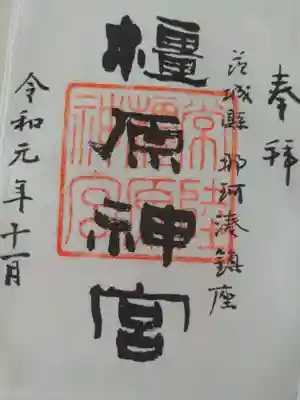 奉拝
茨城縣那珂湊鎮座
橿原神宮
常陸橿原神宮
令和元年十一月